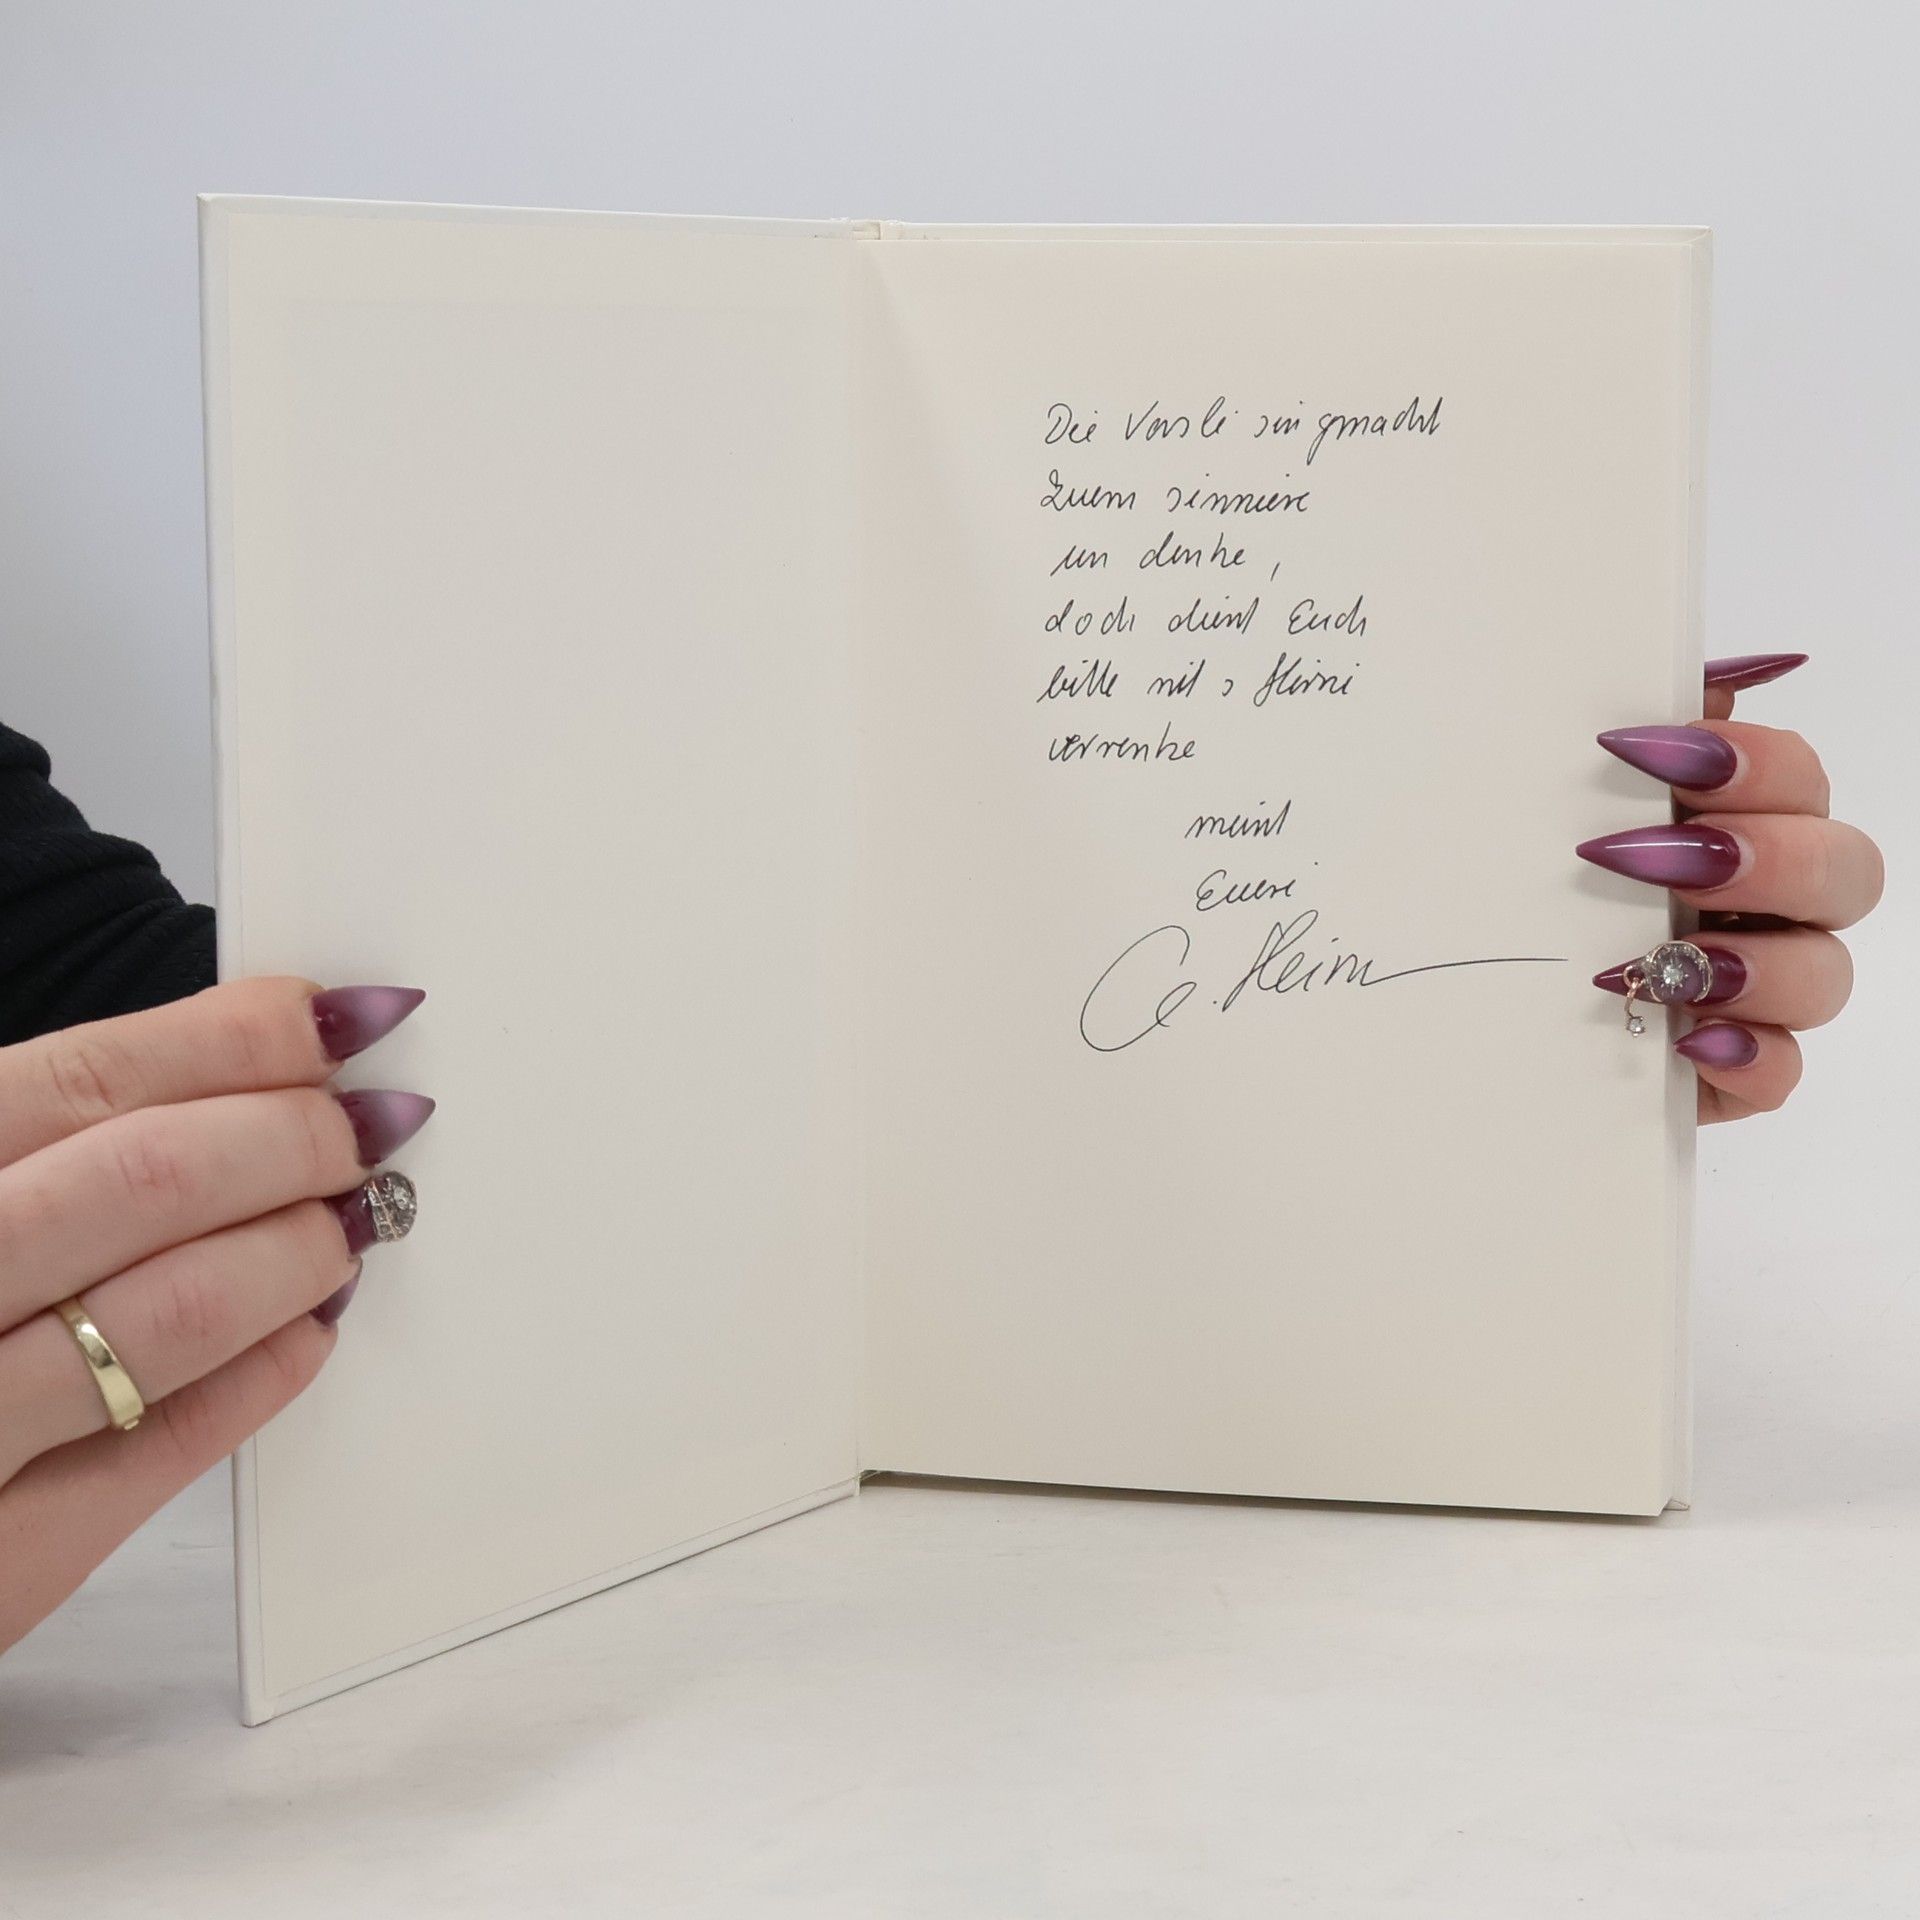 Die Versli sin gmacht
Zuem sinniere
un denke,
doch dient Euch
bitte nit s Hirni
verrenke
meint
Eueri
C. Heim